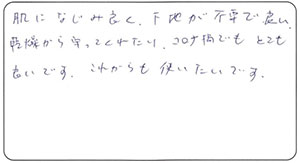 肌になじみ良く、下地が不要で良い、
乾燥から守ってくれたり、コロナ禍でもとても
良いです。これからも使いたいです。